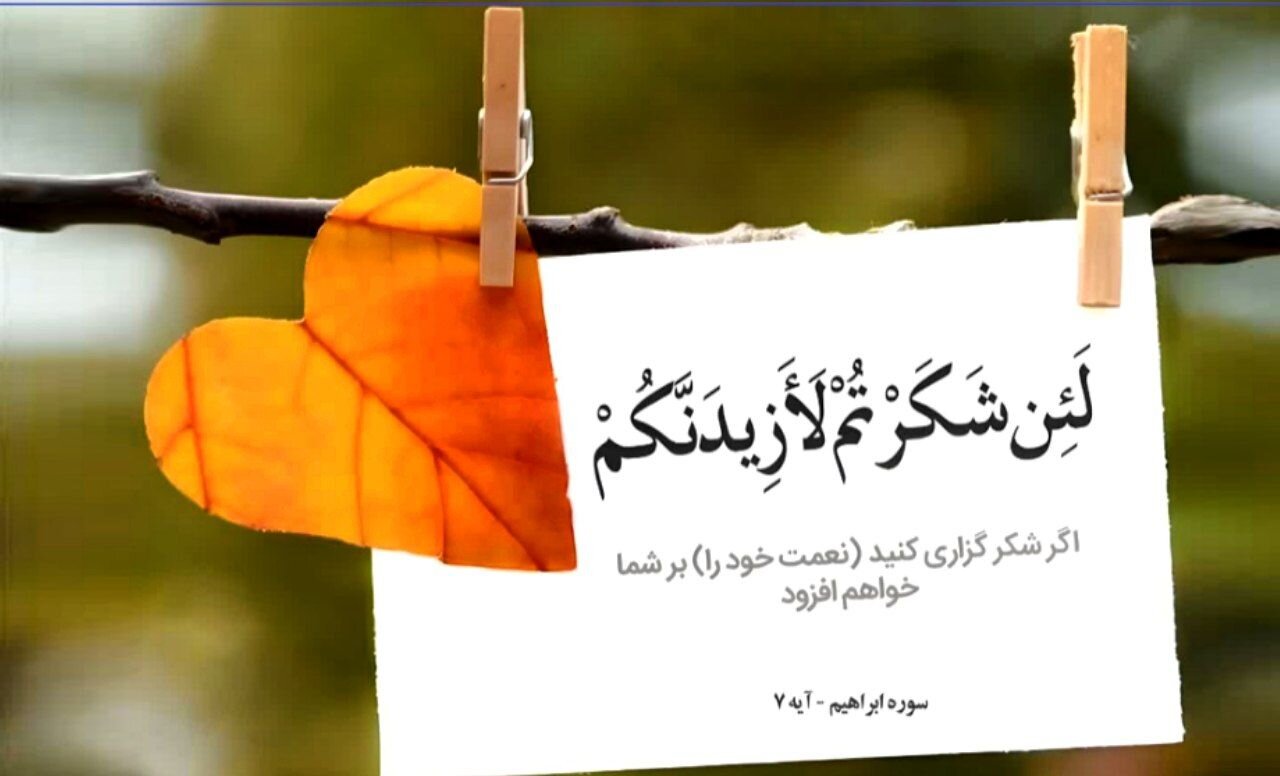 لَئِن شَكَرْتُمْ لَأَزِيدَنَّكُمْ
اگر شکر گزاری کنید (نعمت خود را) بر شما
خواهم افزود
سوره ابراهیم - آیه ۷